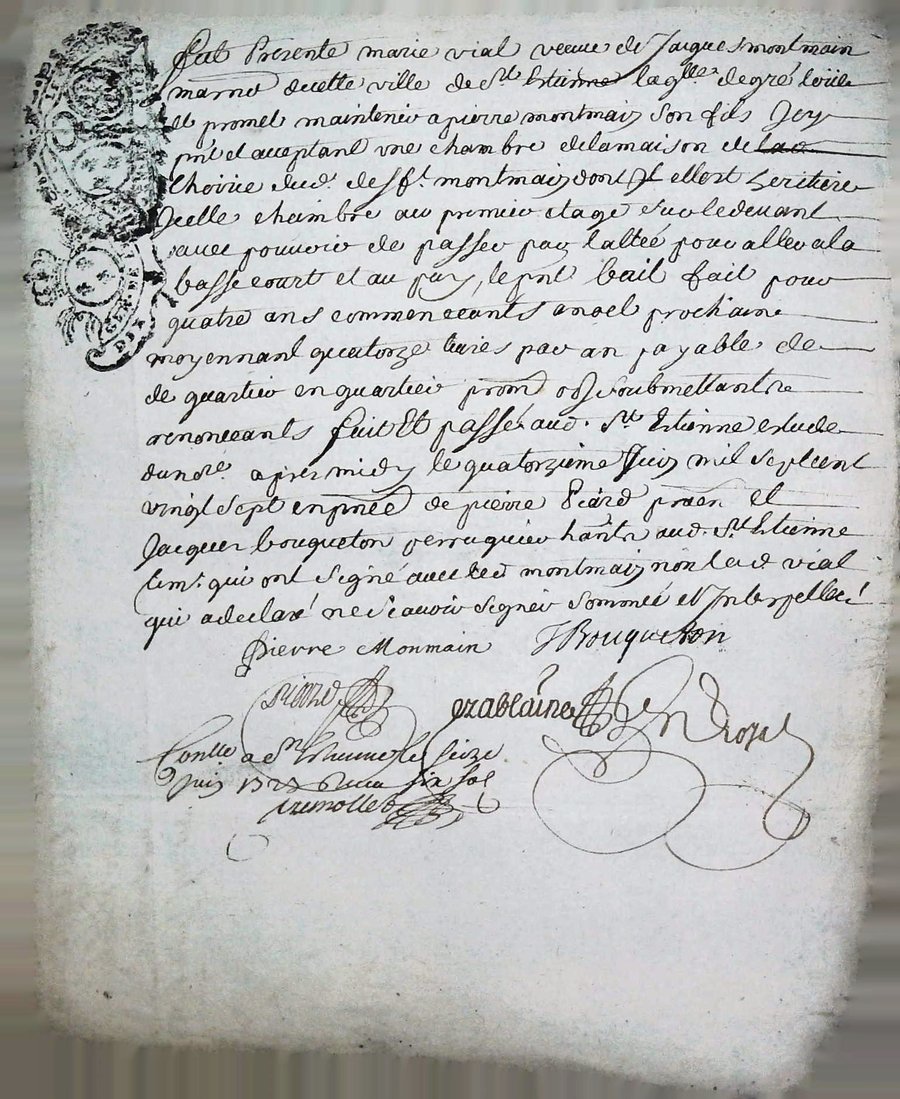 Fut Presente marie vial veuve de Jacques montmain
marno decette ville de St Estienne laqlle degré loüe
et promet maintenir a pierre montmain Son fils Jcy
pnt et acceptant une chambre delamaison de
Choirie dud. deff.t montmain dont Jl ellest heritiere
Jcelle chambre au premier etage sur ledevant
avec pouvoir de passer par lallée pour aller ala
basse court et au puy, le pnt bail fait pour
quatre ans commenceants anoel prochaine
moyennant quatorze livres par an payable de
de quartier en quartier prom obl soubmettant re
renonceants fait Et passé aud. St Estienne estude
dunore. apres midy le quatorzieme Juin mil Sept cent
vingt Sept enpnce de pierre Picard praen et
Jacques bouqueton perruquier hants aud. St Etienne
tems. qui ont Signé avec led montmain non lad vial
qui adeclaré ne Scavoir Signer Sommée et Interpellée
Pierre Monmain JBouqueton
picard
nre Royal
Conllé a St Estienne le Seize
Juin 1727 Receu six sols